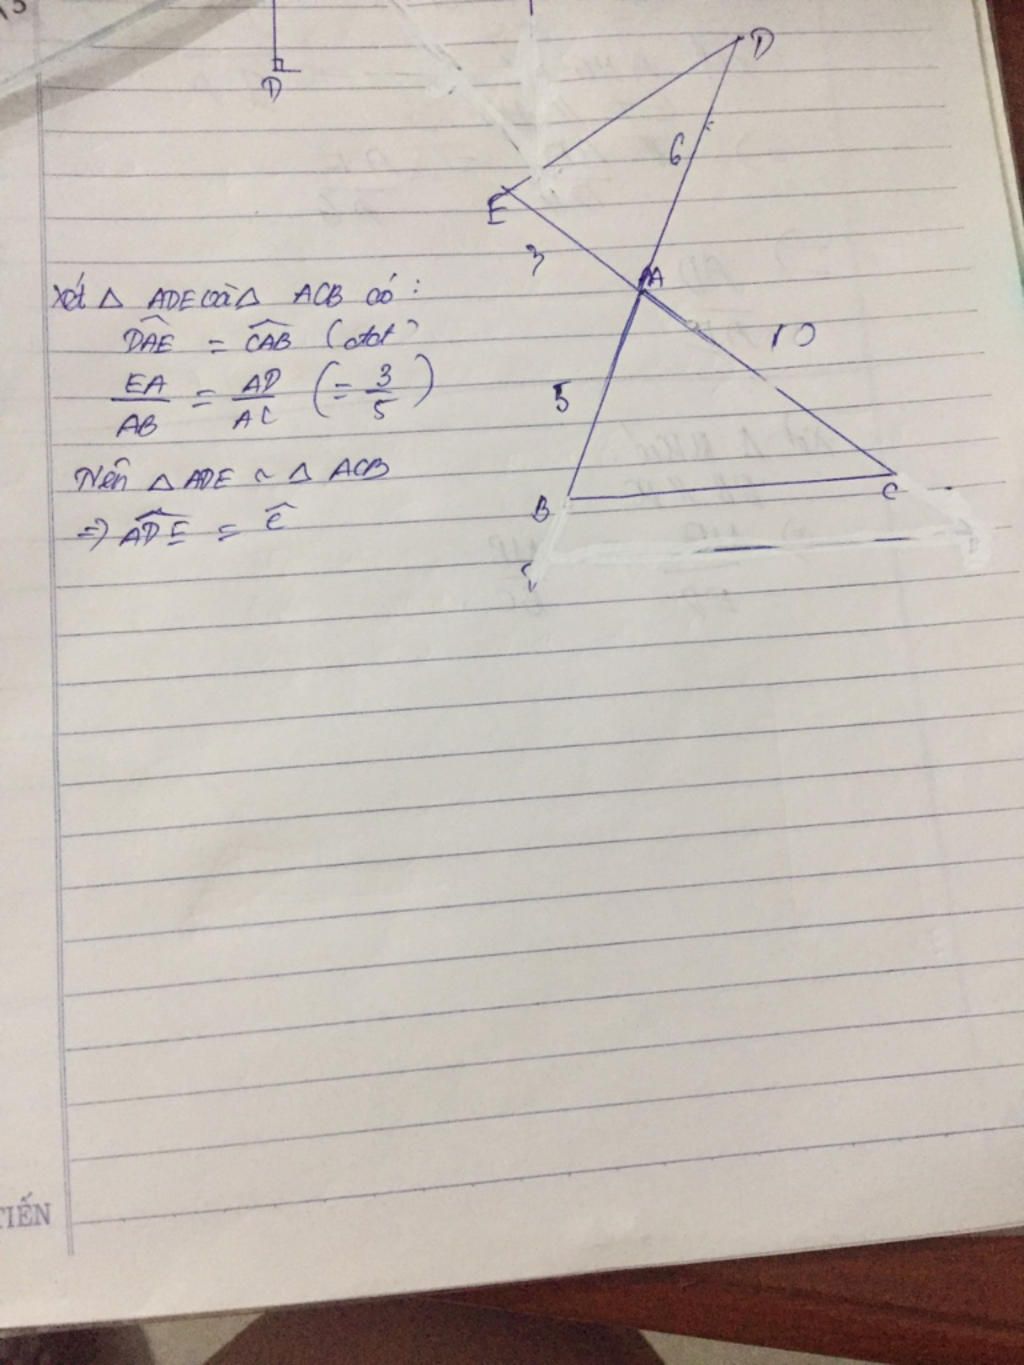 D
D
6
E
3
A
10
5
B
C
Xét △ ADE và △ ACB có :
DAE = CAB (đđ)
EA/AB = AD/AC (= 3/5)
Nên △ ADE ~ △ ACB
=> ADE = C
TIẾN